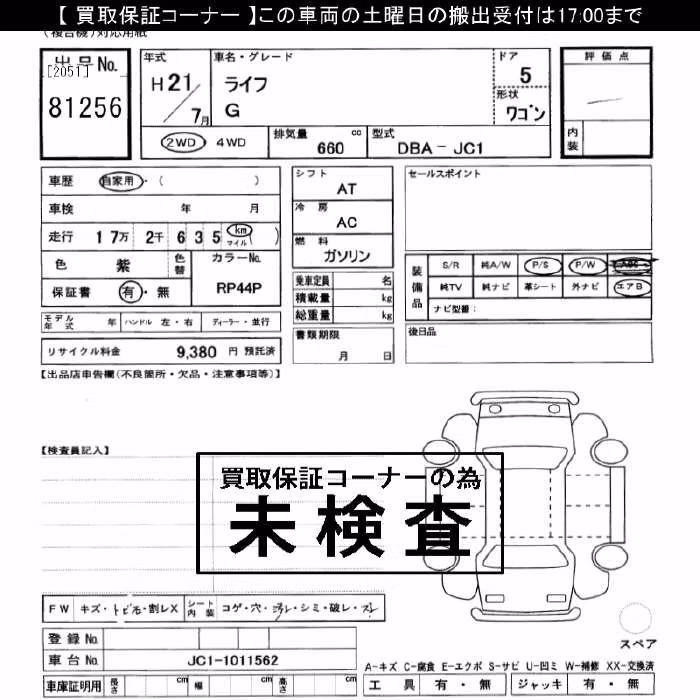 【 買取保証コーナー 】この車両の土曜日の搬出受付は17:00まで
(複合機)対応用紙
出品No.
[2051]
81256
年式 車名・グレード ドア 評価点
H21/7月 ライフ 5
G 形状 ワゴン
2WD・4WD 排気量 660 cc 型式 DBA-JC1 内装
車歴 自家用・( )
車検 年 月
走行 17万 2千 635 km マイル( )
色 紫 色替 カラーNo. RP44P
保証書 有・無
モデル年式 年 ハンドル 左・右 ディーラー・並行
リサイクル料金 9,380 円 預託済
シフト AT
冷房 AC
燃料 ガソリン
乗車定員 名
積載量 kg
総重量 kg
書類期限 月 日
セールスポイント
装備品 S/R 純A/W P/S P/W ABS
純TV 純ナビ 革シート 外ナビ エアB
ナビ型番：
後日品
【出品店申告欄(不良箇所・欠品・注意事項等)】
【検査員記入】
買取保証コーナーの為
未検査
FW キズ・トビ石・割レX シート内装 コゲ・穴・スレ・シミ・破レ・スレ
登録No.
車台No. JC1-1011562
車庫証明用 長さ cm 幅 cm 高さ cm
スペア
A-キズ C-腐食 E-エクボ S-サビ U-凹ミ W-補修 XX-交換済
工具 有・無 ジャッキ 有・無